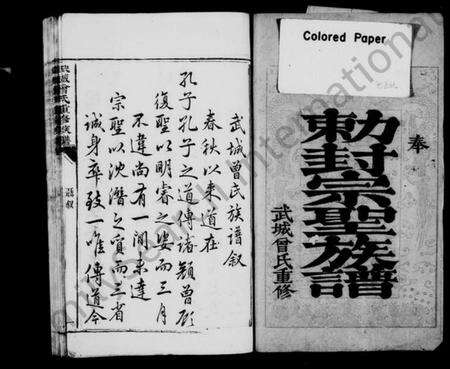 Colored Paper
奉
勅封宗聖族譜
武城曾氏重修
武城曾氏族譜叙
春秋以來道在
孔子孔子之道傳諸顏曾顏
復聖以明睿之姿而三月
不違尚有一間未達
宗聖以沈潛之質而三省
誠身卒致一唯傳道今
武城曾氏重修族譜